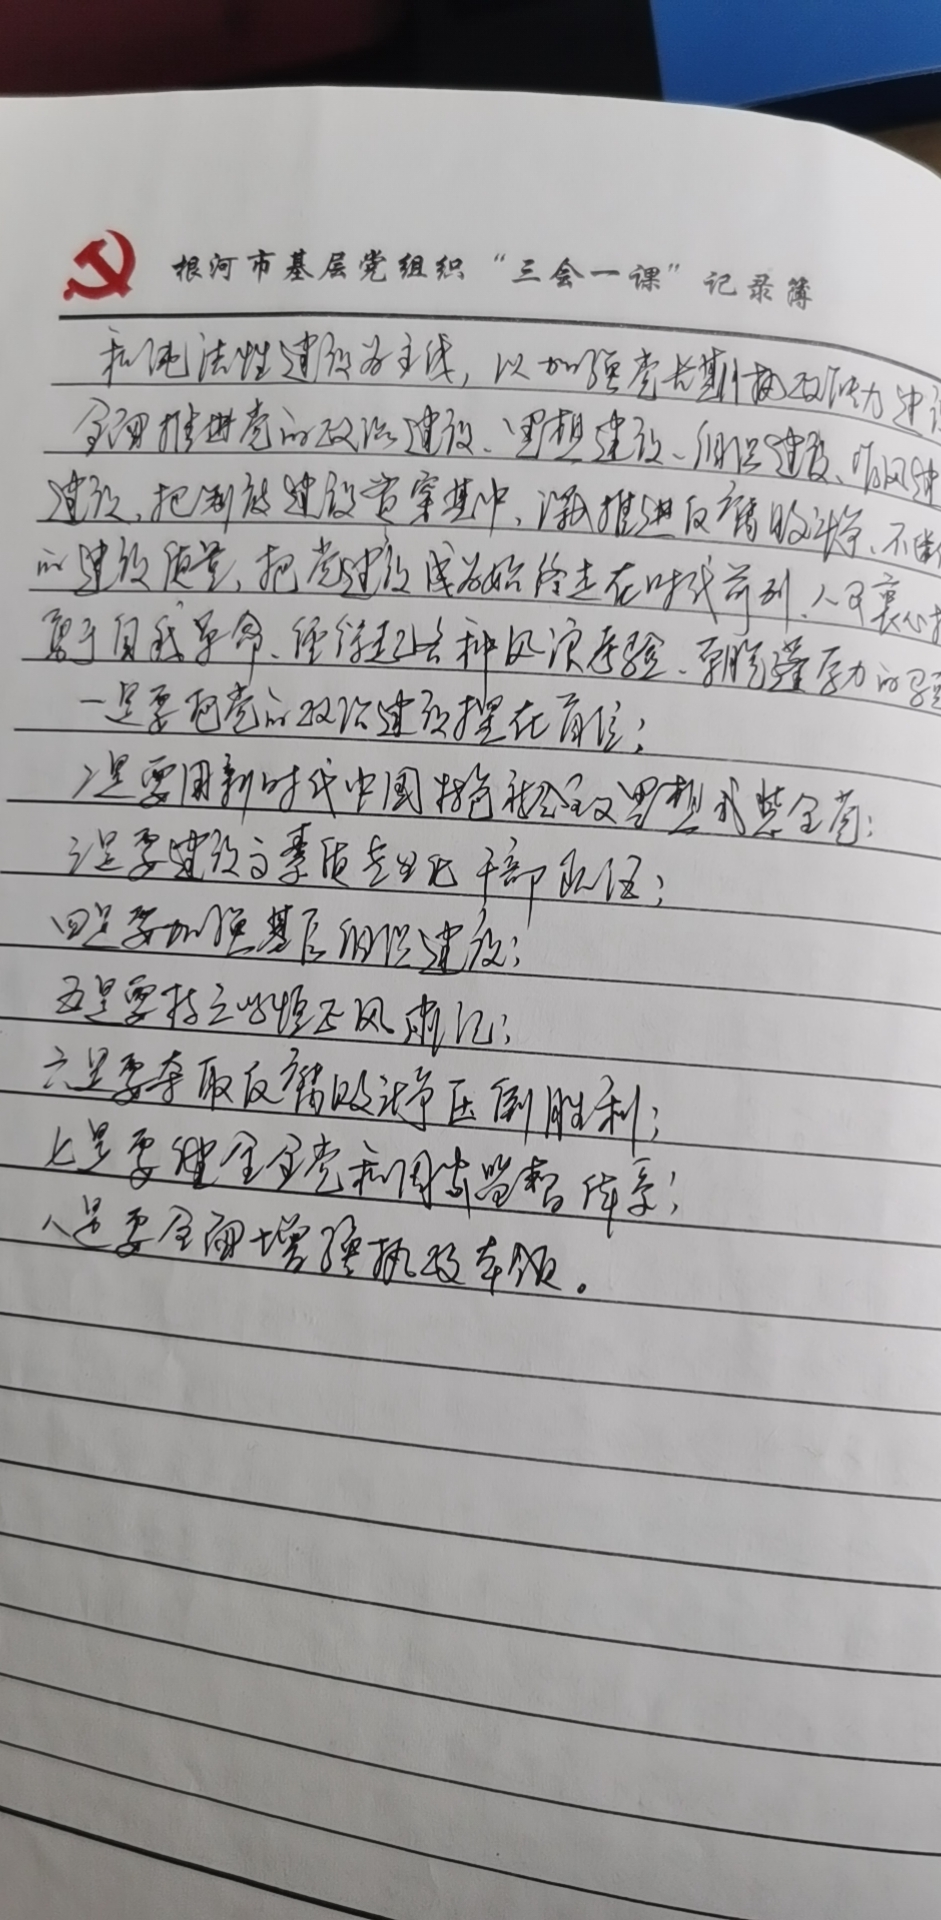 根河市基层党组织“三会一课”记录簿
和纯洁性建设为主线，以加强党长期执政能力建设
全面推进党的政治建设、思想建设、组织建设、作风建
建设，把制度建设贯穿其中，深入推进反腐败斗争，不断
的建设质量，把党建设成为始终走在时代前列、人民衷心拥
勇于自我革命、经得起各种风浪考验、朝气蓬勃的
一是要把党的政治建设摆在首位；
二是要用新时代中国特色社会主义思想武装全党；
三是要建设高素质专业化干部队伍；
四是要加强基层组织建设；
五是要持之以恒正风肃纪；
六是要夺取反腐败斗争压倒胜利；
七是要健全全党和国家监督体系；
八是要全面增强执政本领。